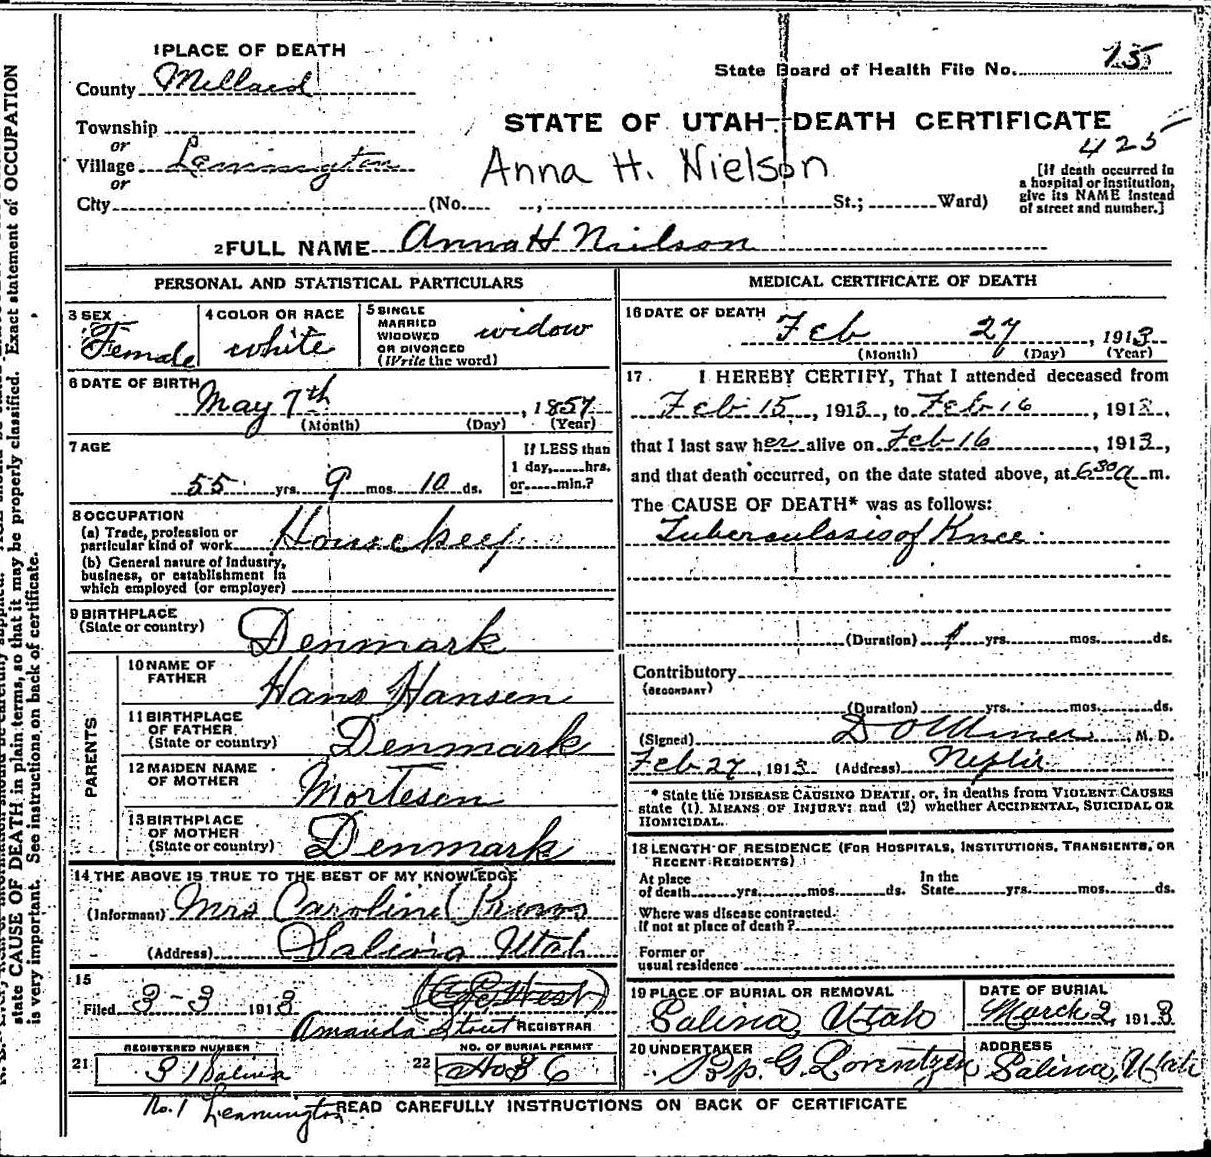 1 PLACE OF DEATH
County Millard
State Board of Health File No. 15
Township
or
Village Leamington
or
City (No. , St.; Ward)
STATE OF UTAH—DEATH CERTIFICATE
425
Anna H. Nielson
[If death occurred in
a hospital or institution,
give its NAME instead
of street and number.]
2 FULL NAME Anna H Nielson
PERSONAL AND STATISTICAL PARTICULARS
3 SEX
Female
4 COLOR OR RACE
white
5 SINGLE
MARRIED
WIDOWED
OR DIVORCED
(Write the word)
widow
6 DATE OF BIRTH
May 7th , 1857
(Month) (Day) (Year)
7 AGE
55 yrs. 9 mos. 10 ds.
If LESS than
1 day, hrs.
or min.?
8 OCCUPATION
(a) Trade, profession or
particular kind of work Housekeep
(b) General nature of industry,
business, or establishment in
which employed (or employer)
9 BIRTHPLACE
(State or country)
Denmark
PARENTS
10 NAME OF
FATHER
Hans Hansen
11 BIRTHPLACE
OF FATHER
(State or country)
Denmark
12 MAIDEN NAME
OF MOTHER
Mortesen
13 BIRTHPLACE
OF MOTHER
(State or country)
Denmark
14 THE ABOVE IS TRUE TO THE BEST OF MY KNOWLEDGE
(Informant) Mrs Caroline
(Address) Salina Utah
15
Filed 3-3 1913
Amanda Stout REGISTRAR
REGISTERED NUMBER
21 31 Salina
NO. OF BURIAL PERMIT
22 36
No. 1 Leamington
MEDICAL CERTIFICATE OF DEATH
16 DATE OF DEATH
Feb 27 , 1913
(Month) (Day) (Year)
17. I HEREBY CERTIFY, That I attended deceased from
Feb 15, 1913, to Feb 16, 1913,
that I last saw her alive on Feb 16, 1913,
and that death occurred, on the date stated above, at 6 30 a m.
The CAUSE OF DEATH* was as follows:
Tuberculosis of Knee
(Duration) 1 yrs. mos. ds.
Contributory
(SECONDARY)
(Duration) yrs. mos. ds.
(Signed) D O Miner, M. D.
Feb 27, 1913 (Address) Nephi
* State the DISEASE CAUSING DEATH, or, in deaths from VIOLENT CAUSES
state (1). MEANS OF INJURY; and (2) whether ACCIDENTAL, SUICIDAL OR
HOMICIDAL.
18 LENGTH OF RESIDENCE (FOR HOSPITALS, INSTITUTIONS, TRANSIENTS, OR
RECENT RESIDENTS)
At place
of death yrs. mos. ds.
In the
State yrs. mos. ds.
Where was disease contracted.
if not at place of death?
Former or
usual residence
19 PLACE OF BURIAL OR REMOVAL
Salina, Utah
DATE OF BURIAL
March 2, 1913
20 UNDERTAKER
G. Lorentzen
ADDRESS
Salina, Utah
READ CAREFULLY INSTRUCTIONS ON BACK OF CERTIFICATE
state CAUSE OF DEATH in plain terms, so that it may be properly classified. Exact statement of OCCUPATION
is very important. See instructions on back of certificate.